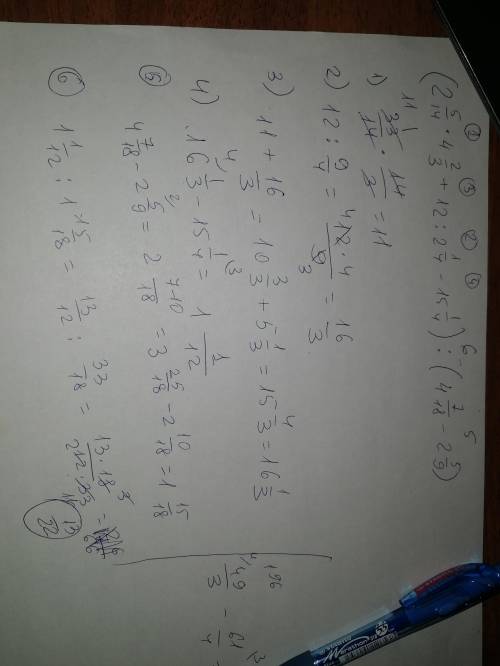 ① ③ ② ④ 6 5
(2 5/14 · 4 2/3 + 12 : 2 1/4 - 15 1/4) : (4 7/18 - 2 5/9)
1) 33/14 · 14/3 = 11
2) 12 : 9/4 = 12 · 4 / 9 = 16/3
3) 11 + 16/3 = 10 3/3 + 5 1/3 = 15 4/3 = 16 1/3
4) 16 1/3 - 15 1/4 = 1 1/12
⑤ 4 7/18 - 2 5/9 = 2 7-10/18 = 3 25/18 - 2 10/18 = 1 15/18
⑥ 1 1/12 : 1 15/18 = 13/12 : 33/18 = 13 · 18 / 12 · 33 = 13/22
196
49/3 - 61/4